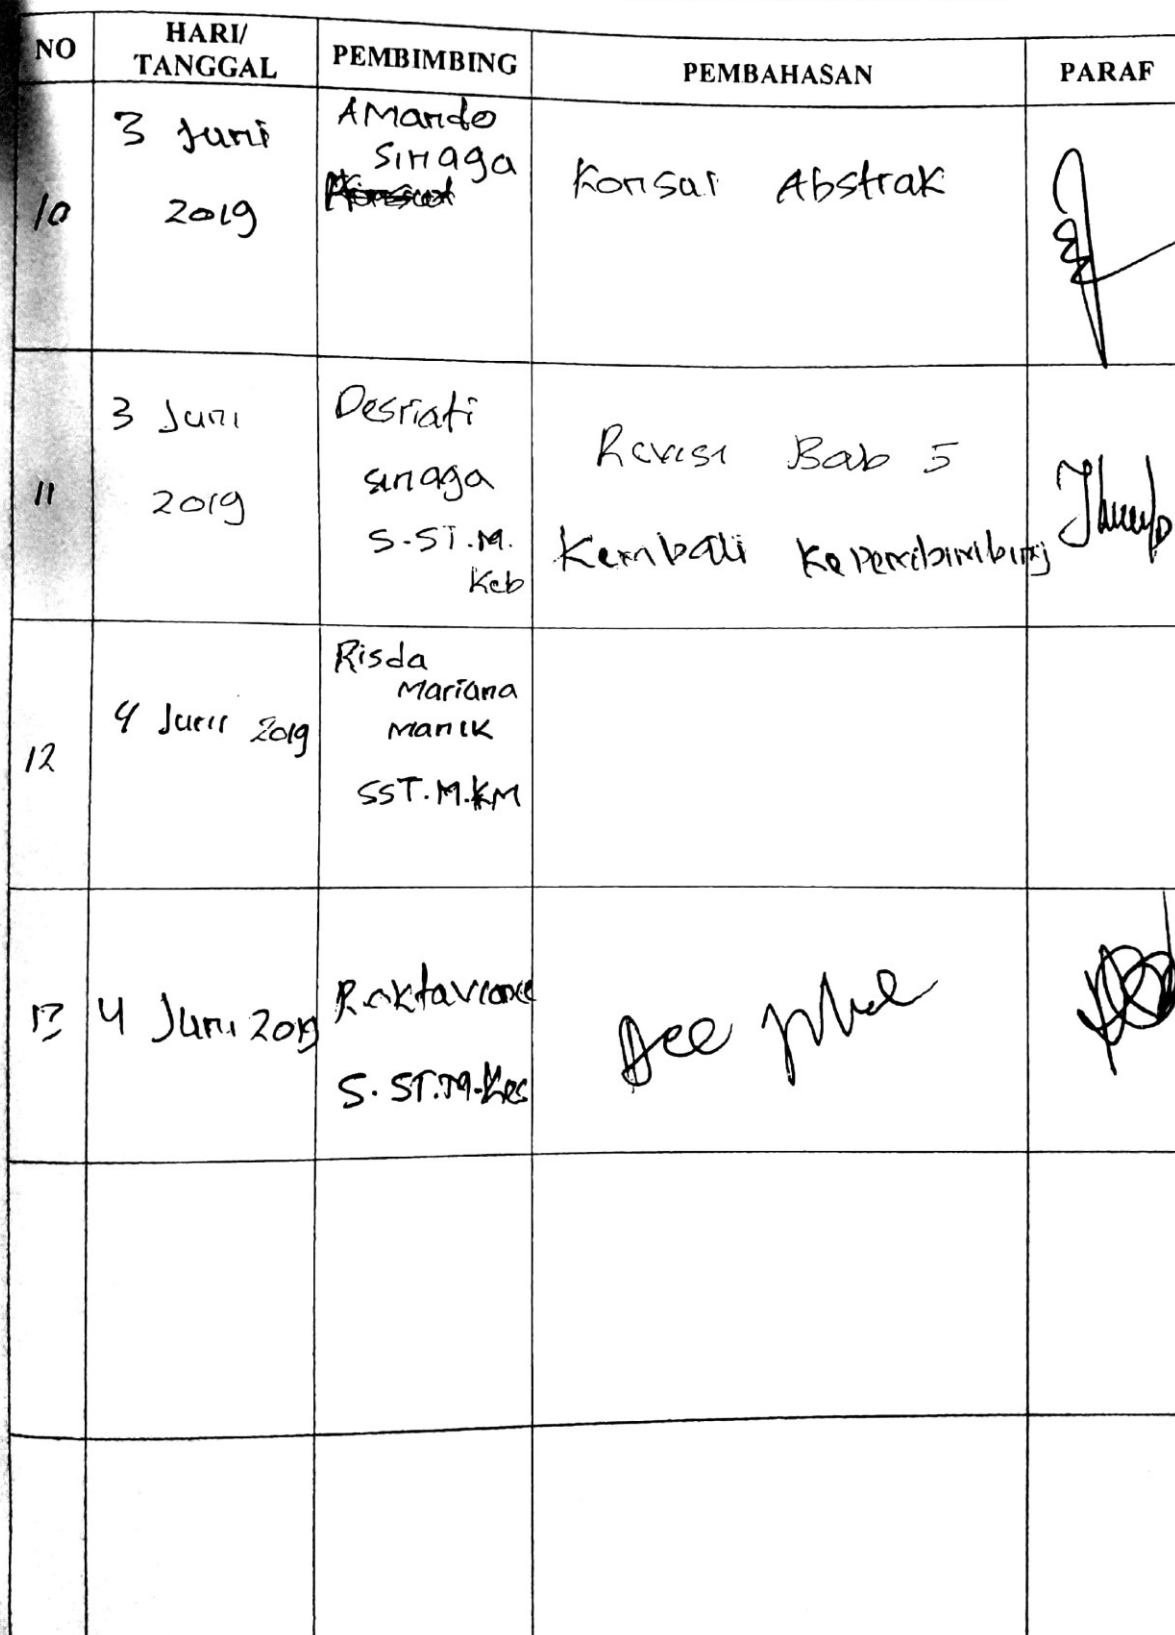 NO HARI/ TANGGAL PEMBIMBING PEMBAHASAN PARAF
10 3 Juni 2019 AMando Sinaga Konsul Abstrak
11 3 Juni 2019 Desriati sinaga S-ST.M. Keb Revisi Bab 5 Kembali Ke Pembimbing
12 4 Juni 2019 Risda Mariana Manik SST.M.KM
13 4 Juni 2019 S.ST.M.Kes Acc